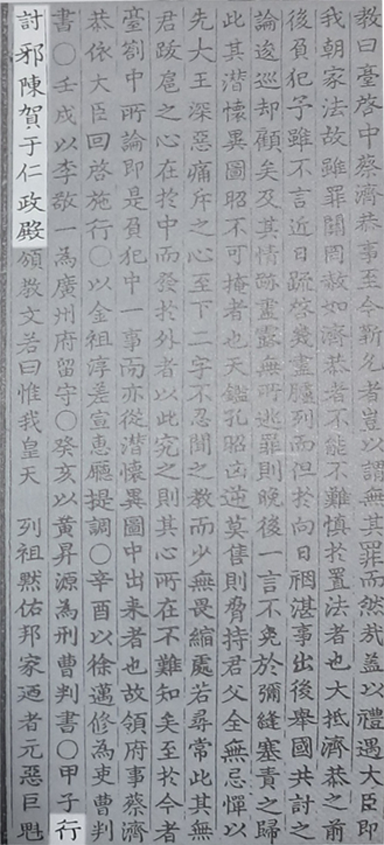 教曰臺啓中蔡濟恭事至今靳允者豈以謂無其罪而然哉蓋以禮遇大臣即
我朝家法故雖罪關罔赦如濟恭者不能不難慎於置法者也大抵濟恭之前
後負犯予雖不言近日疏啓幾盡臚列而但於向日裀湛事出後舉國共討之
論逡巡却顧矣及其情跡畫露無所逃罪則晚後一言不免於彌縫塞責之歸
此其潜懷異圖昭不可掩者也天鑑孔昭凶逆莫售則脅持君父全無忌憚以
先大王深惡痛斥之心至下二字不忍聞之教而少無畏縮處若尋常此其無
君跋扈之心在於中而發於外者以此究之則其心所在不難知矣至於今者
臺劄中所論即是負犯中一事而亦從潜懷異圖中出来者也故領府事蔡濟
恭依大臣回啓施行〇以金祖淳差宣惠廳提調〇辛酉以徐邁修為吏曹判
書〇壬戌以李敬一為廣州府留守〇癸亥以黃昇源為刑曹判書〇甲子行
討邪陳賀于仁政殿頒教文若曰惟我皇天 列祖黙佑邦家廼者元惡巨魁